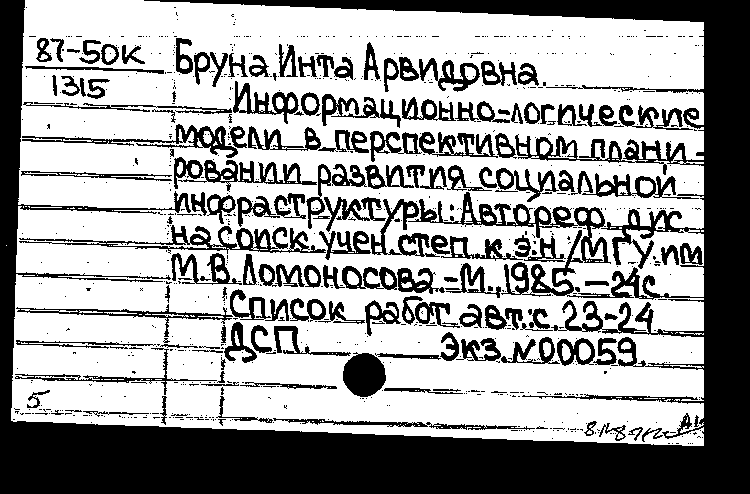 87-50к
1315
Бруна, Инта Арвидовна.
Информационно-логические
модели в перспективном плани-
ровании развития социальной
инфраструктуры: Автореф. дис.
на соиск. учен. степ. к.э.н. /МГУ им
М.В. Ломоносова. -М., 1985. -24с.
Список работ авт.: с. 23-24.
ДСП. Экз. N00059.
5